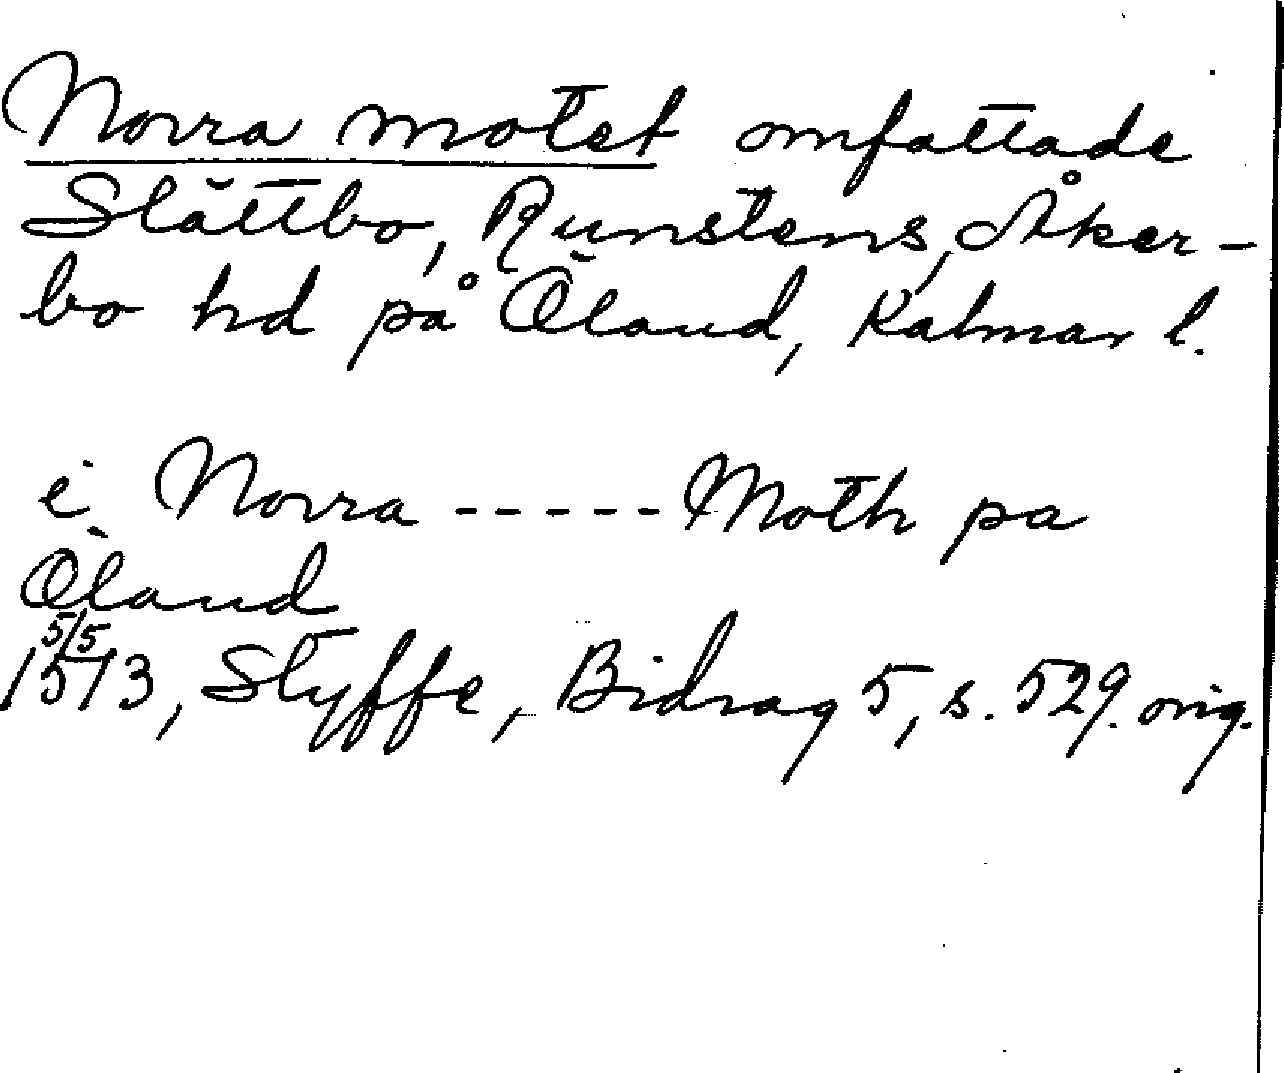 Norra motet omfattade
Slättbo, Runstens, Åker-
bo hd på Öland, Kalmar l.
i Norra ----- Moth pa
Öland
5/5
1513, Styffe, Bidrag 5, s. 529. orig.